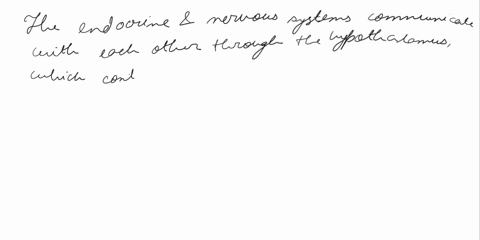 The endocrine & nervous systems communicate
with each other through the hypothalamus,
which cont